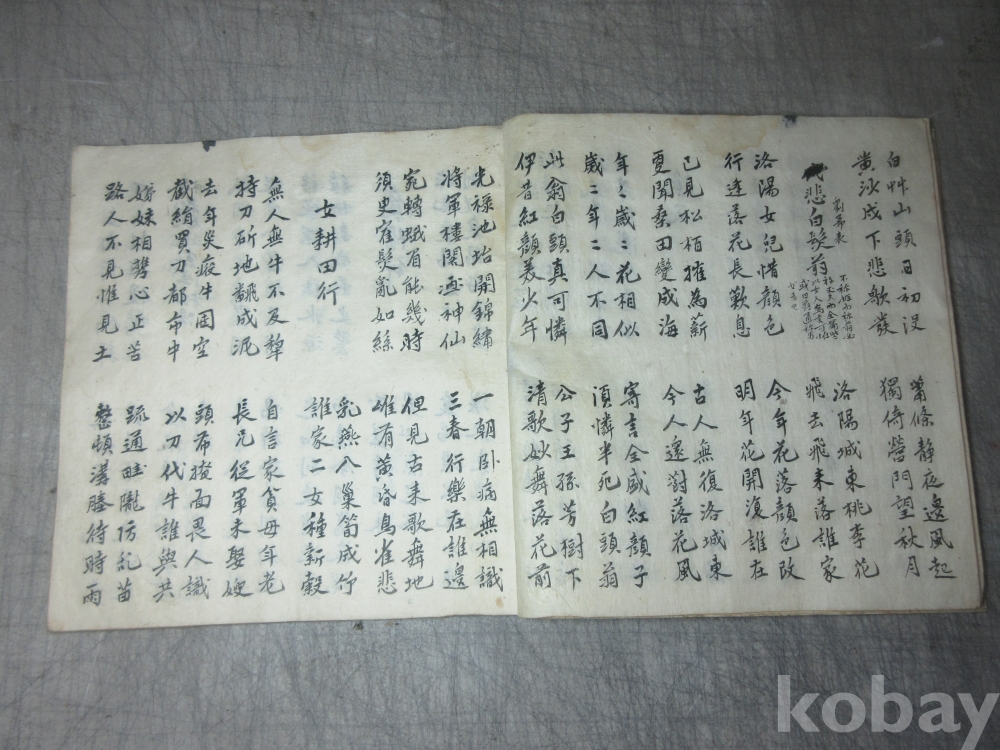 白艸山頭日初没
黄沙戍下悲歌發
蕭條靜夜邊風起
獨倚營門望秋月
悲白髮翁
劉希夷
洛陽城東桃李花
飛去飛来落誰家
洛陽女兒惜顔色
行逢落花長歎息
今年花落顔色改
明年花開復誰在
已見松栢摧為薪
更聞桑田變成海
古人無復洛城東
今人還對落花風
年々歲々花相似
歲々年々人不同
寄言全盛紅顔子
須憐半死白頭翁
此翁白頭真可憐
伊昔紅顔美少年
公子王孫芳樹下
清歌妙舞落花前
光祿池坮開錦繡
將軍樓閣畫神仙
一朝卧病無相識
三春行樂在誰邊
宛轉蛾眉能幾時
須臾寉髮亂如絲
但見古来歌舞地
惟有黄昏鳥雀悲
女耕田行
乳燕入巢筍成竹
誰家二女種新穀
無人無牛不及犂
持刀斫地飜成泥
自言家貧母年老
長兄從軍未娶嫂
去年災疫牛囤空
截絹買刀都市中
頭巾掩面畏人識
以刀代牛誰與共
姊妹相携心正苦
路人不見惟見土
疏通畦隴防乱苗
整頓溝塍待時雨
kobay